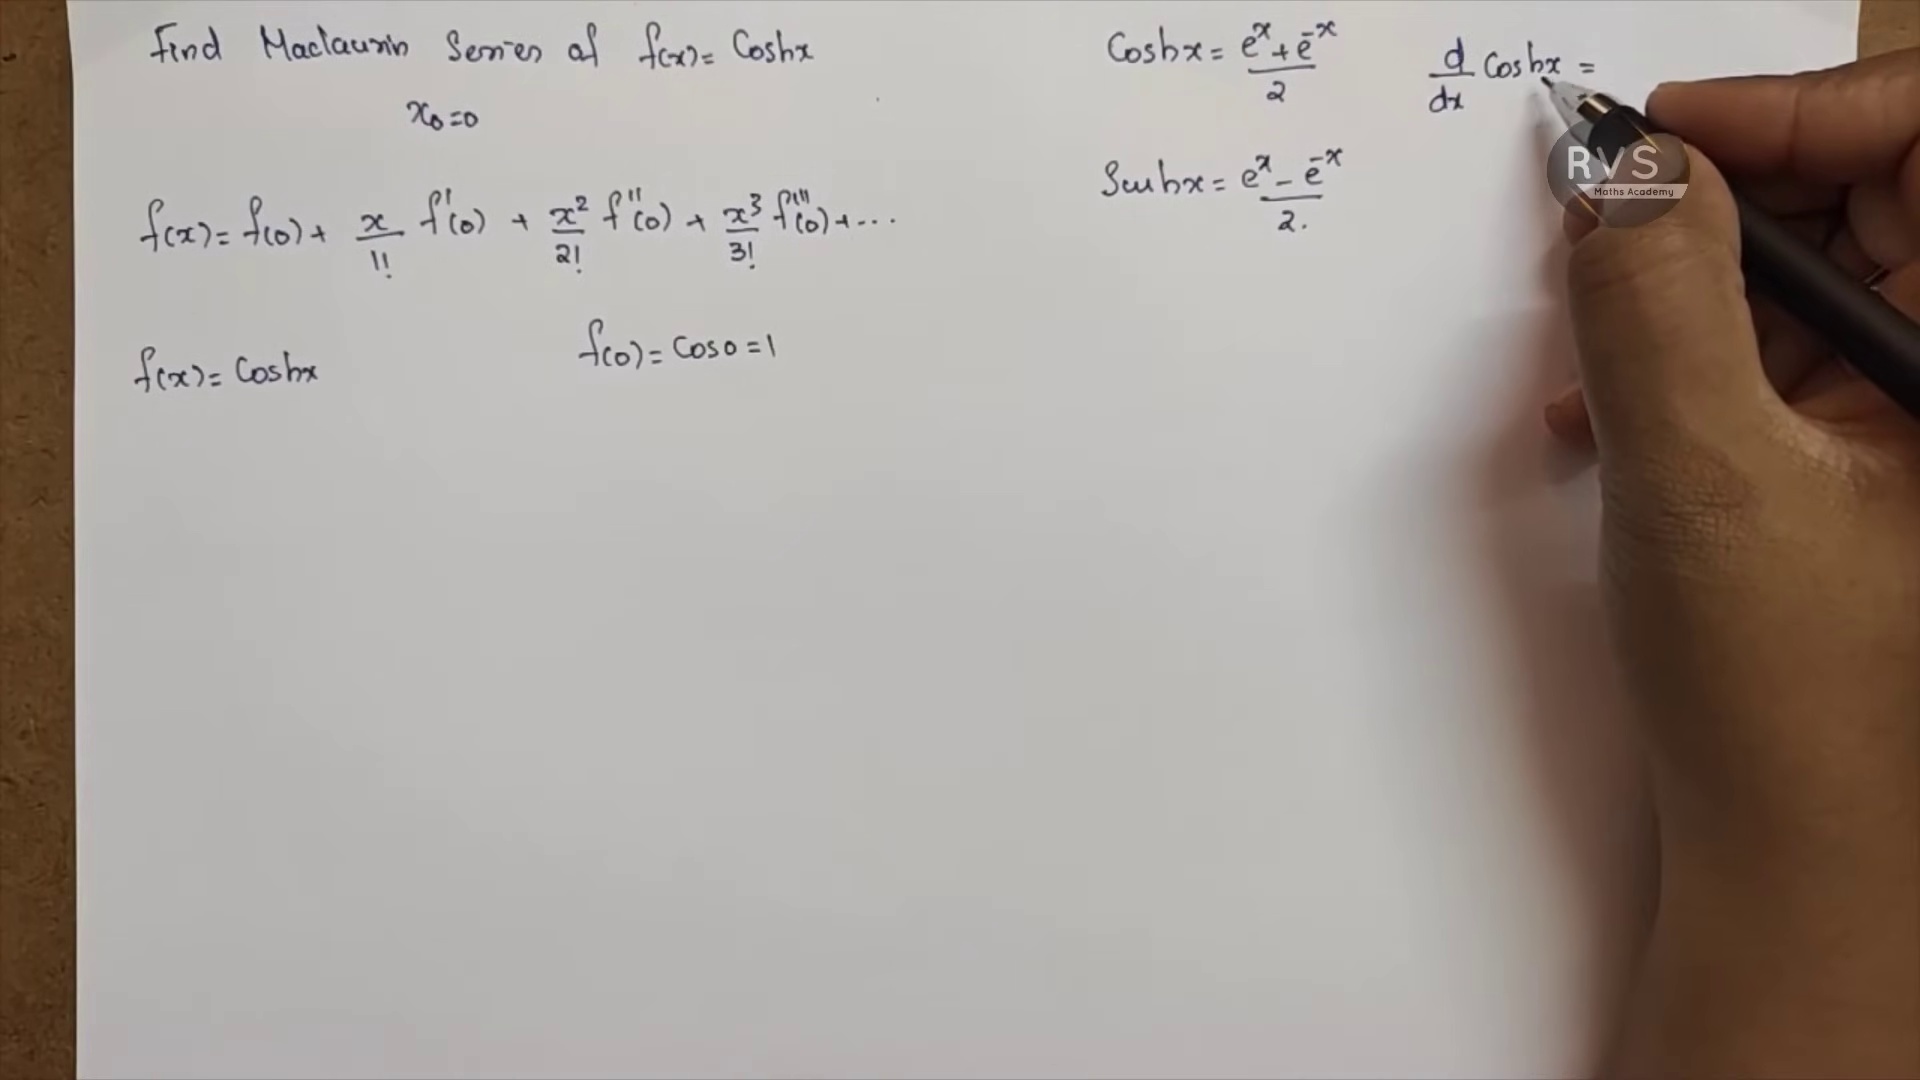 Find Maclaurin Series of f(x) = Coshx
x₀=0
f(x) = f(0) + x/1! f'(0) + x²/2! f''(0) + x³/3! f'''(0) + ...
f(x) = Coshx
f(0) = Cos0 = 1
Coshx = e^x + e^-x / 2
Sinhx = e^x - e^-x / 2.
d/dx Coshx =
RVS
Maths Academy